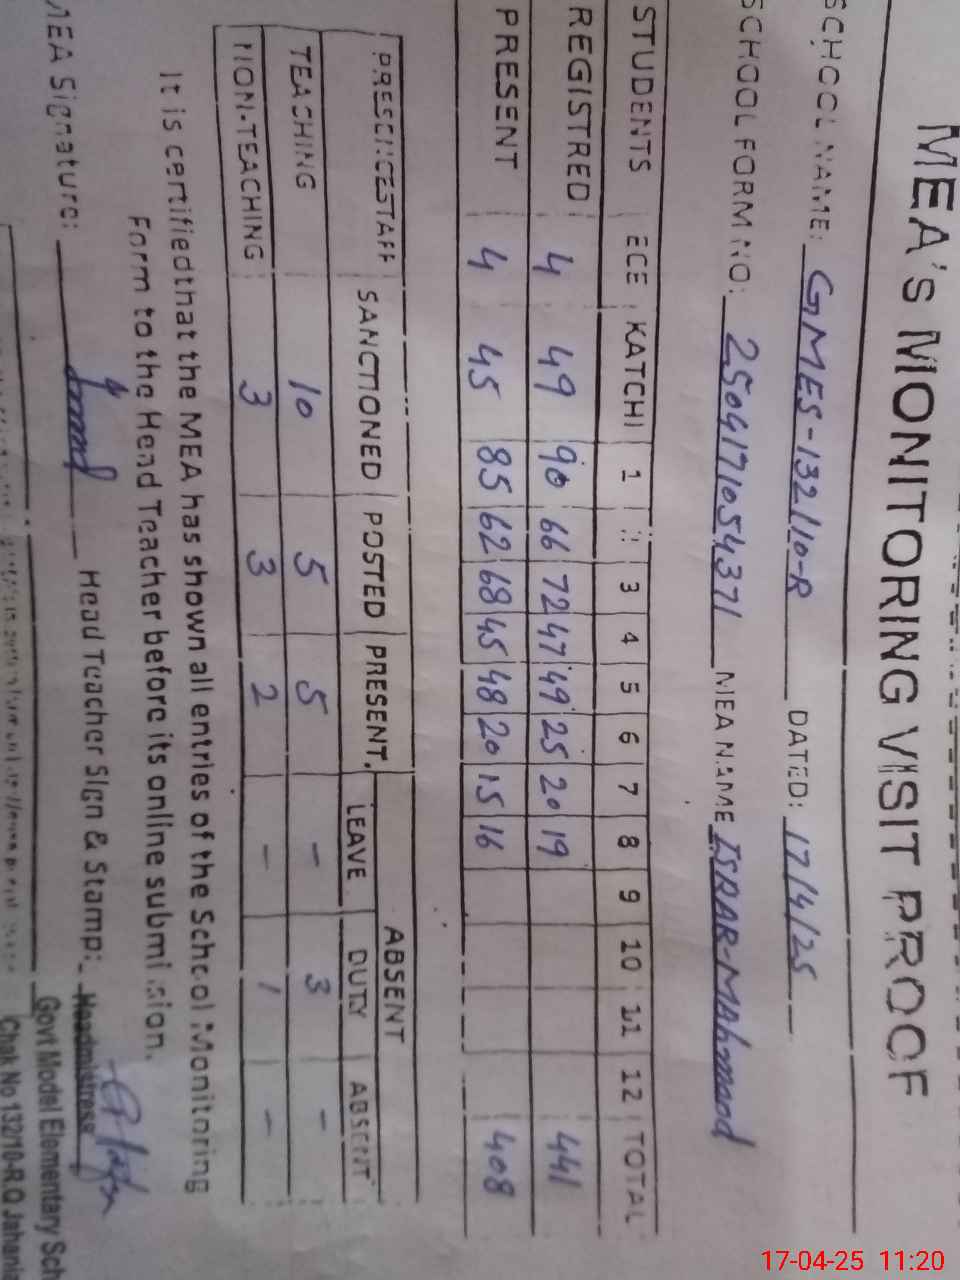 MEA'S MONITORING VISIT PROOF
SCHOOL NAME: GMES-132/10-R DATED: 17/4/25
SCHOOL FORM NO: 2504171054371 MEA NAME ISRAR-MAhmood
STUDENTS ECE KATCHI 1 2 3 4 5 6 7 8 9 10 11 12 TOTAL
REGISTRED 4 49 90 66 72 47 49 25 20 19 441
PRESENT 4 45 85 62 68 45 48 20 15 16 408
PRESENCE STAFF SANCTIONED POSTED PRESENT ABSENT
LEAVE DUTY ABSENT
TEACHING 10 5 5 - 3 -
NON-TEACHING 3 3 2 - 1 -
It is certified that the MEA has shown all entries of the School Monitoring
Form to the Head Teacher before its online submission.
MEA Signature: Head Teacher Sign & Stamp:
Headmistress
Govt Model Elementary Sch
Chak No 132/10-R.Q Jahania
17-04-25 11:20